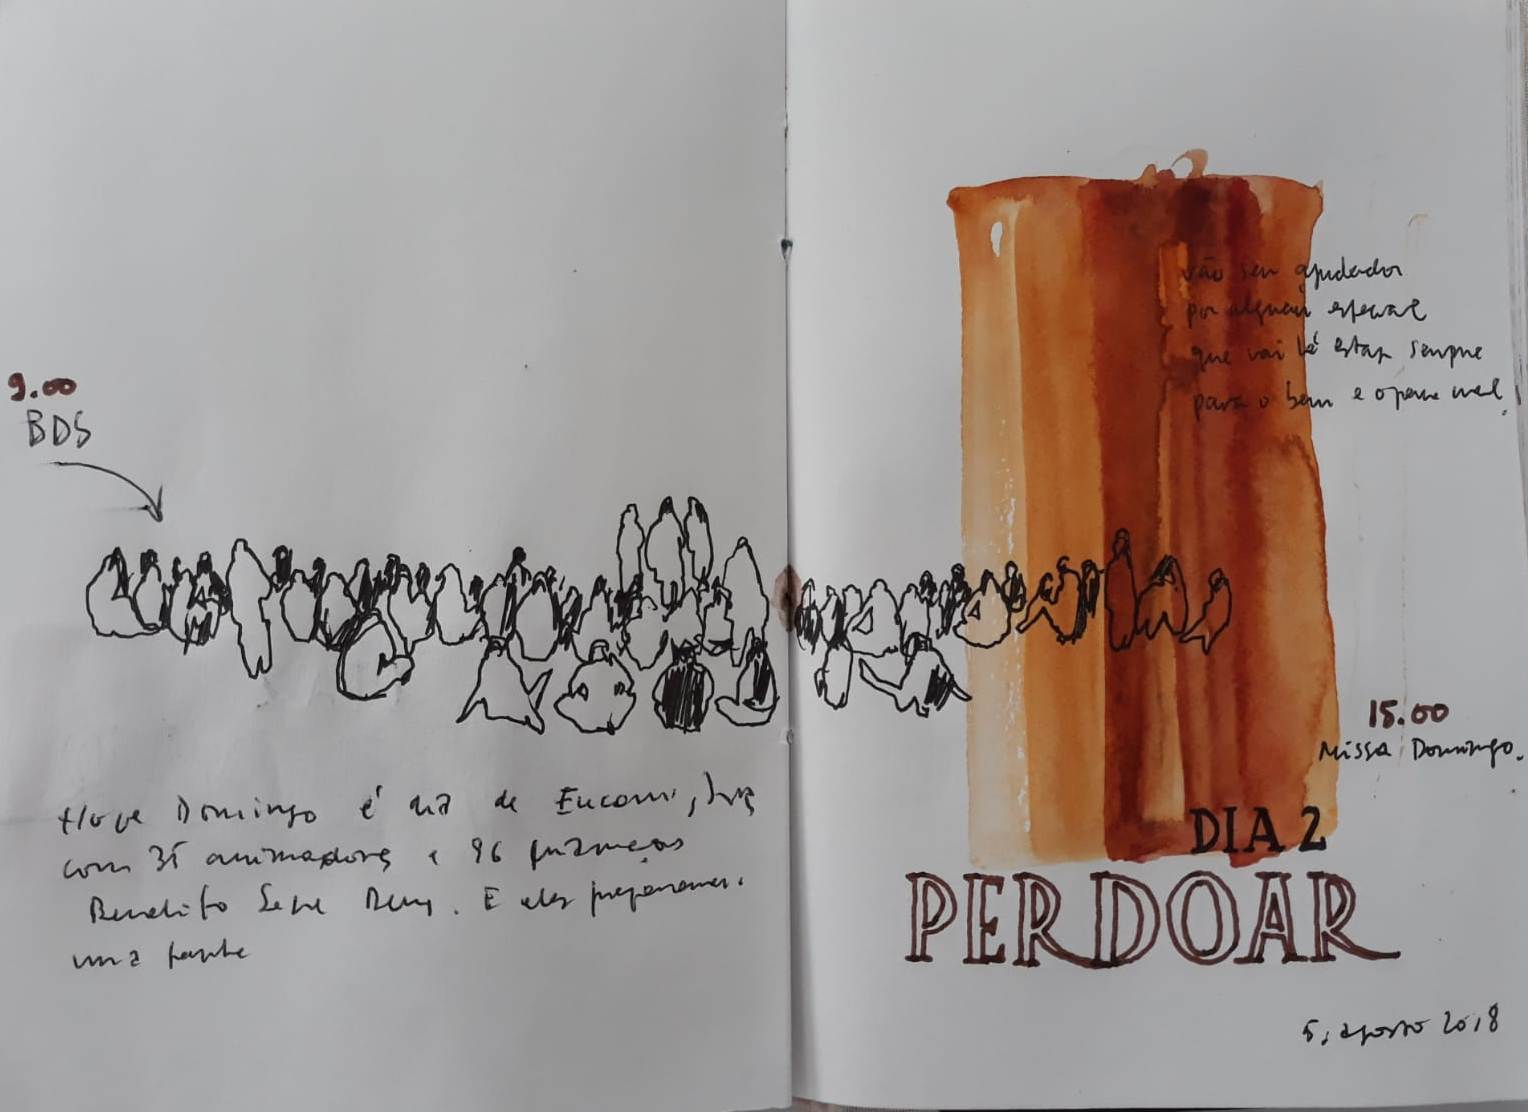 9.00
BDS
Hoje Domingo é dia de
com 35 animadores e 96
Bendito Seja Deus. E eles prepararam
uma
vão ser ajudados
por alguém especial
que vai lá estar sempre
para o bem e o
15.00
Missa Domingo.
DIA 2
PERDOAR
5, agosto 2018